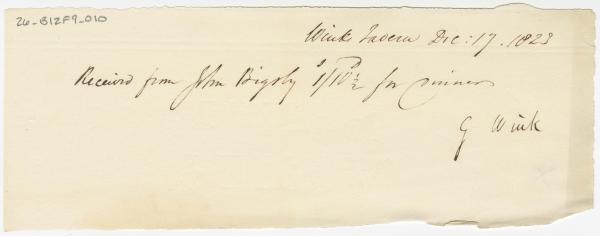 26-B12F9-010
Winks Tavern Dec: 17. 1823
Received from John Bigsby 1/10½ for dinner
G Wink